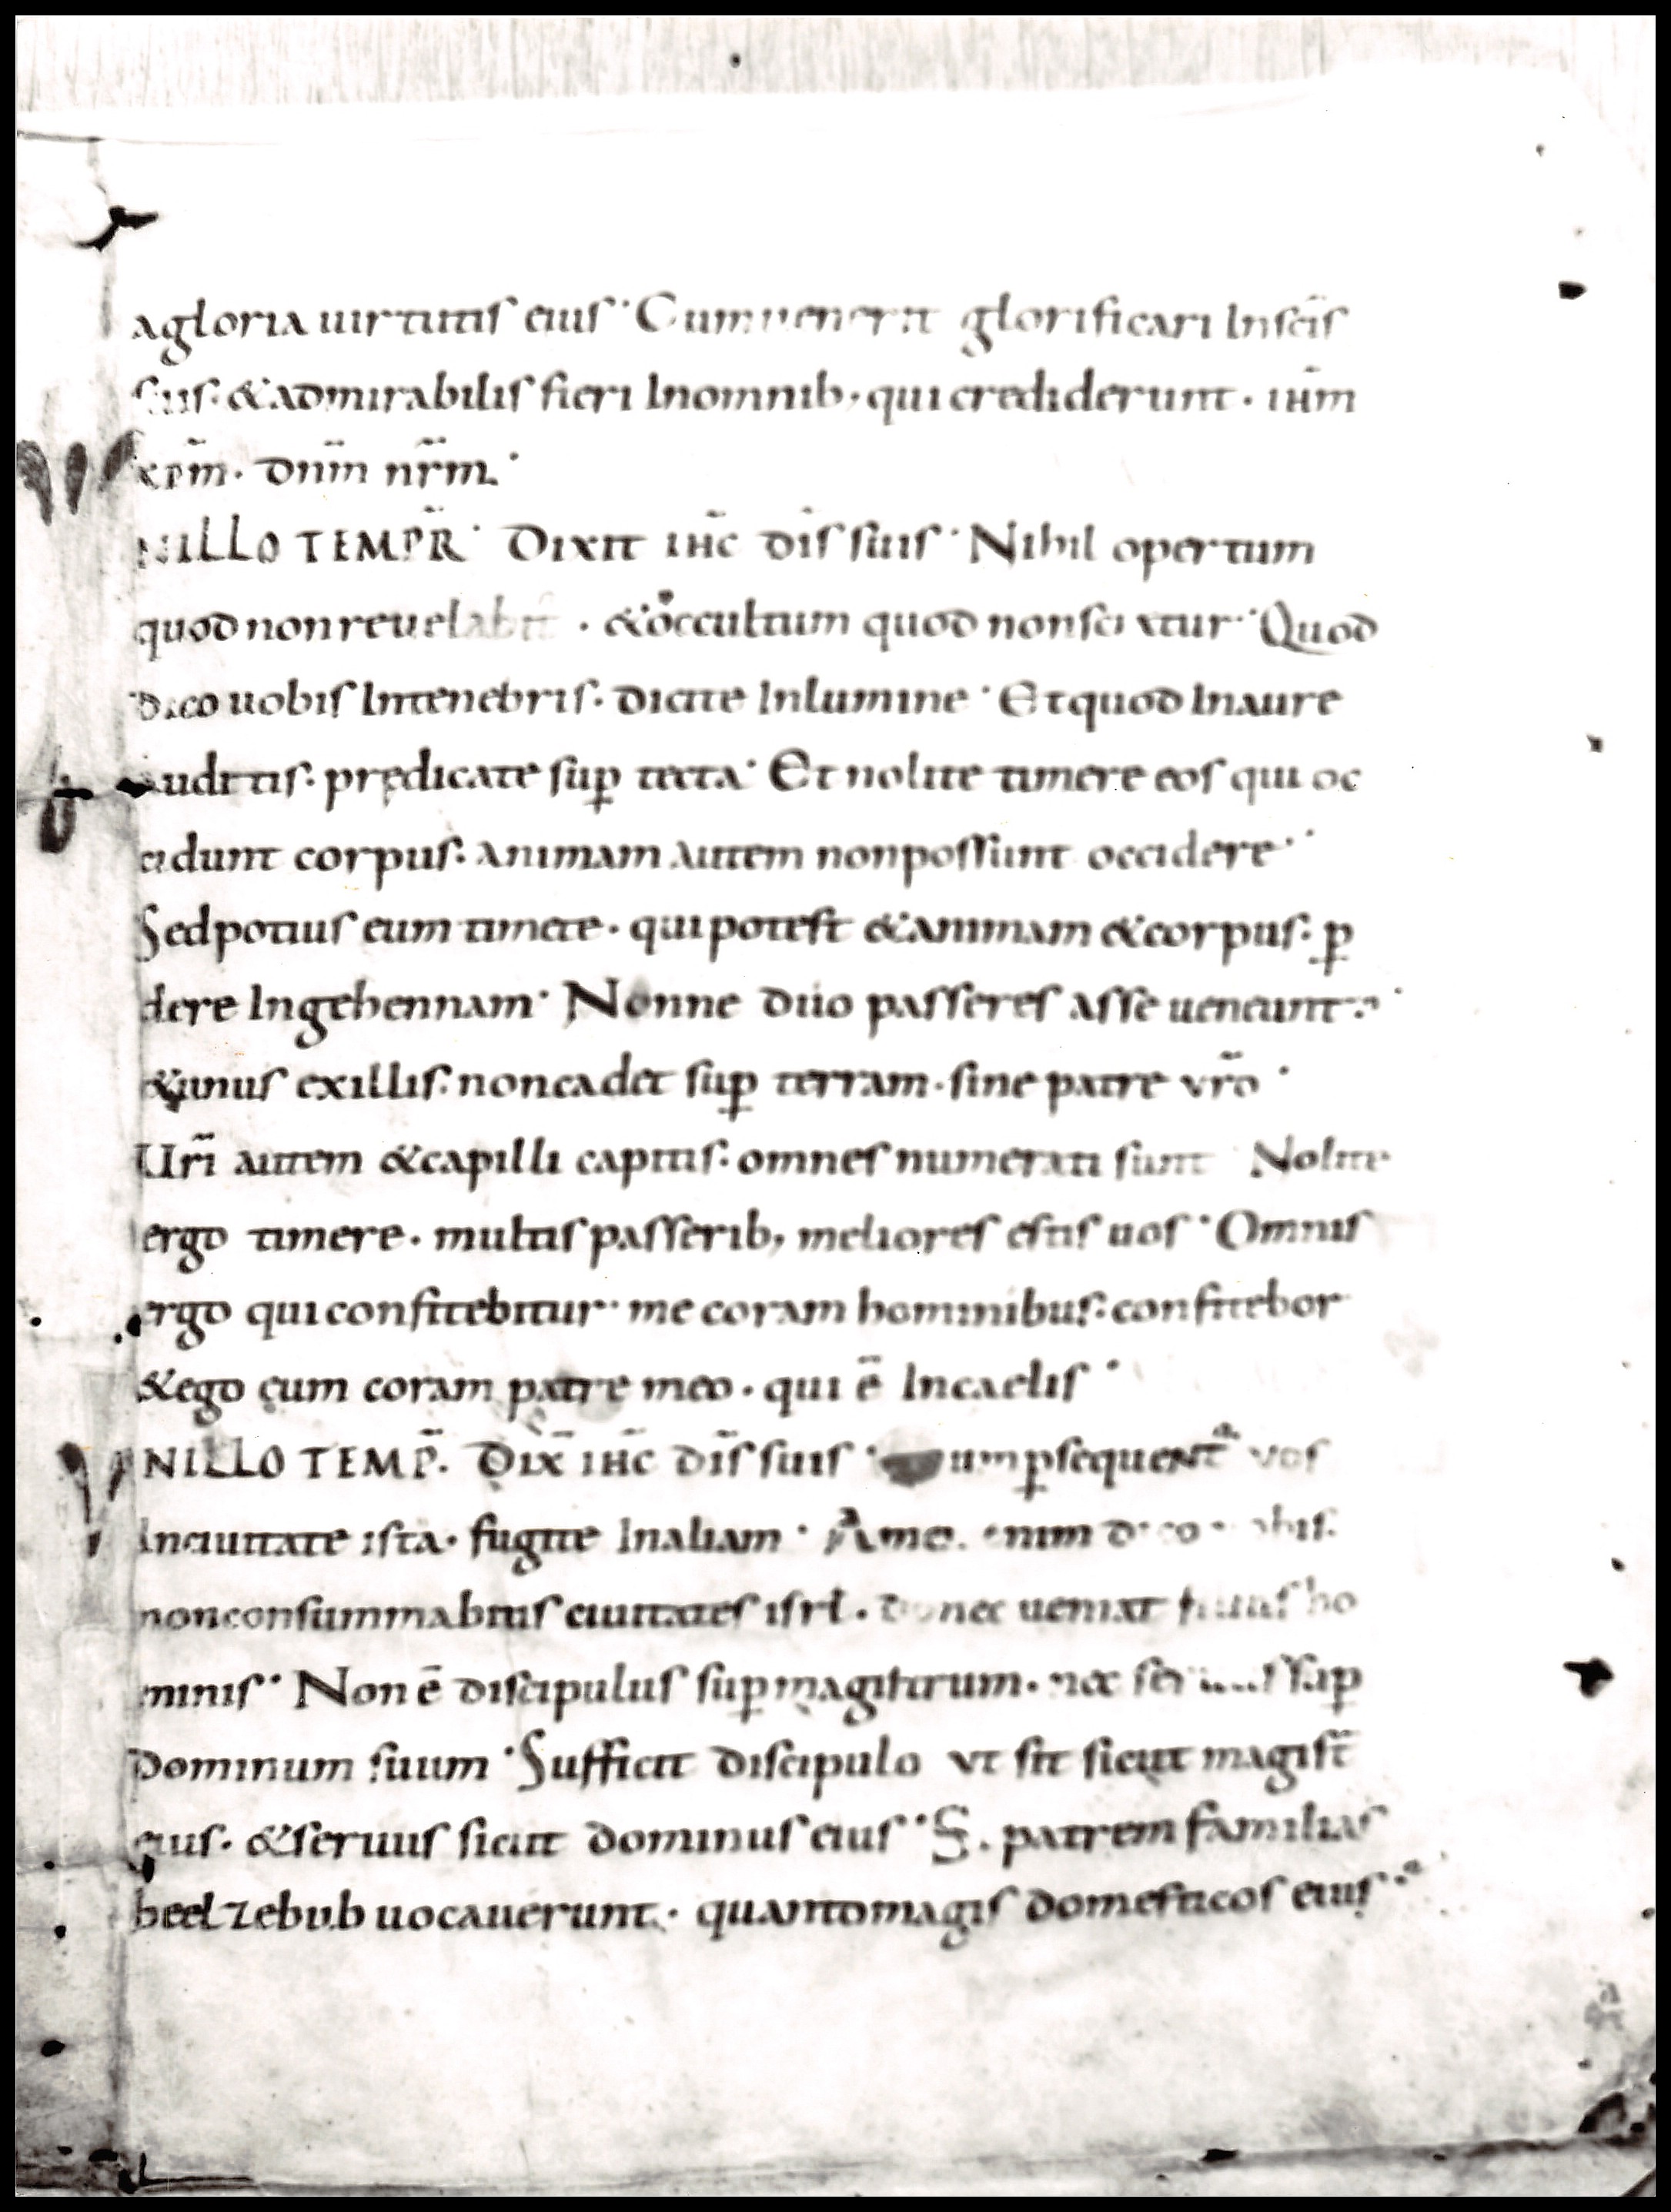 agloria uirtutis eius · Cum uenerit glorificari Insc̄is
suis · &admirabilis fieri Inomnib; · qui crediderunt · ihm̄
xpm̄ · dnm̄ nr̄m ·
NILLO TEMPR̄ · Dixit ihc̄ dīs suis · Nihil opertum
quod non reuelabit · &occultum quod nonsciatur · Quod
dico uobis Intenebris · dicite Inlumine · Et quod Inaure
auditis · prędicate sup̄ tecta · Et nolite timere eos qui oc
cidunt corpus · animam autem non possunt occidere ·
Sed potius eum timete · qui potest &animam &corpus · ꝑ
dere Ingehennam · Nonne duo passeres asse ueneunt ·
&unus exillis · non cadet suꝑ terram · sine patre vr̄o ·
Ur̄i autem &capilli capitis · omnes numerati sunt Nolite
ergo timere · multis passerib; meliores estis uos · Omnis
ergo qui confitebitur · me coram hominibus · confitebor
&ego eum coram patre meo · qui ē Incaelis ·
NILLO TEMP̄ · Dix̄ ihc̄ dīs suis · ꝑsequent̄ vos
Inciuitate ista · fugite Inaliam · enim
nonconsummabitis ciuitates isrl · donec ueniat ho
minis · Non ē discipulus suꝑ magistrum · nec suꝑ
Dominum suum · Sufficit discipulo vt sit sicut magist̄
eius · &seruus sicut dominus eius · S · patrem familias
beelzebub uocauerunt · quanto magis domesticos eius ·